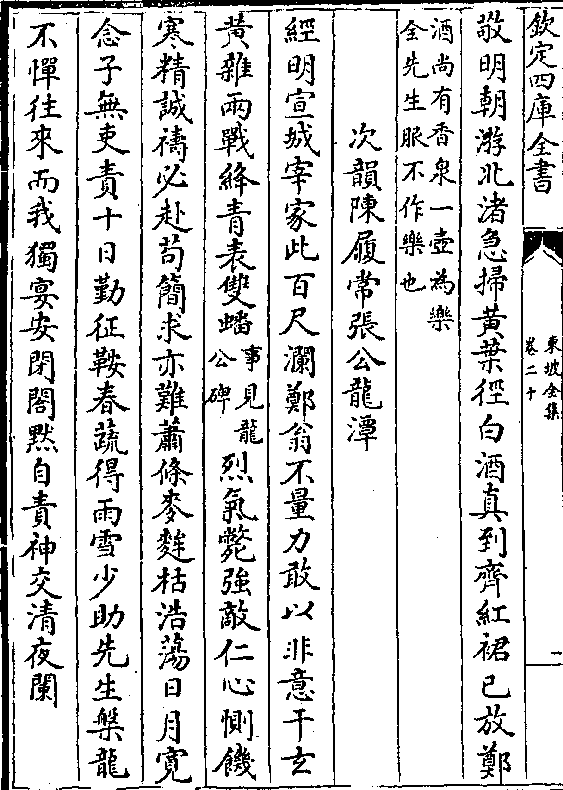 欽定四庫全書
東坡全集
卷二十
二
敬明朝游北渚急掃黃葉徑白酒真到齊紅裙已放鄭
酒尚有香泉一壺為樂
全先生服不作樂也
次韻陳履常張公龍潭
經明宣城宰家此百尺瀾鄭翁不量力敢以非意干玄
黃雜兩戰絳青表雙蟠事見龍公碑烈氣斃強敵仁心惻饑
寒精誠禱必赴苟簡求亦難蕭條麥麰枯浩蕩日月寛
念子無吏責十日勤征鞍春蔬得雨雪少助先生槃龍
不憚往來而我獨宴安閉閤黙自責神交清夜闌